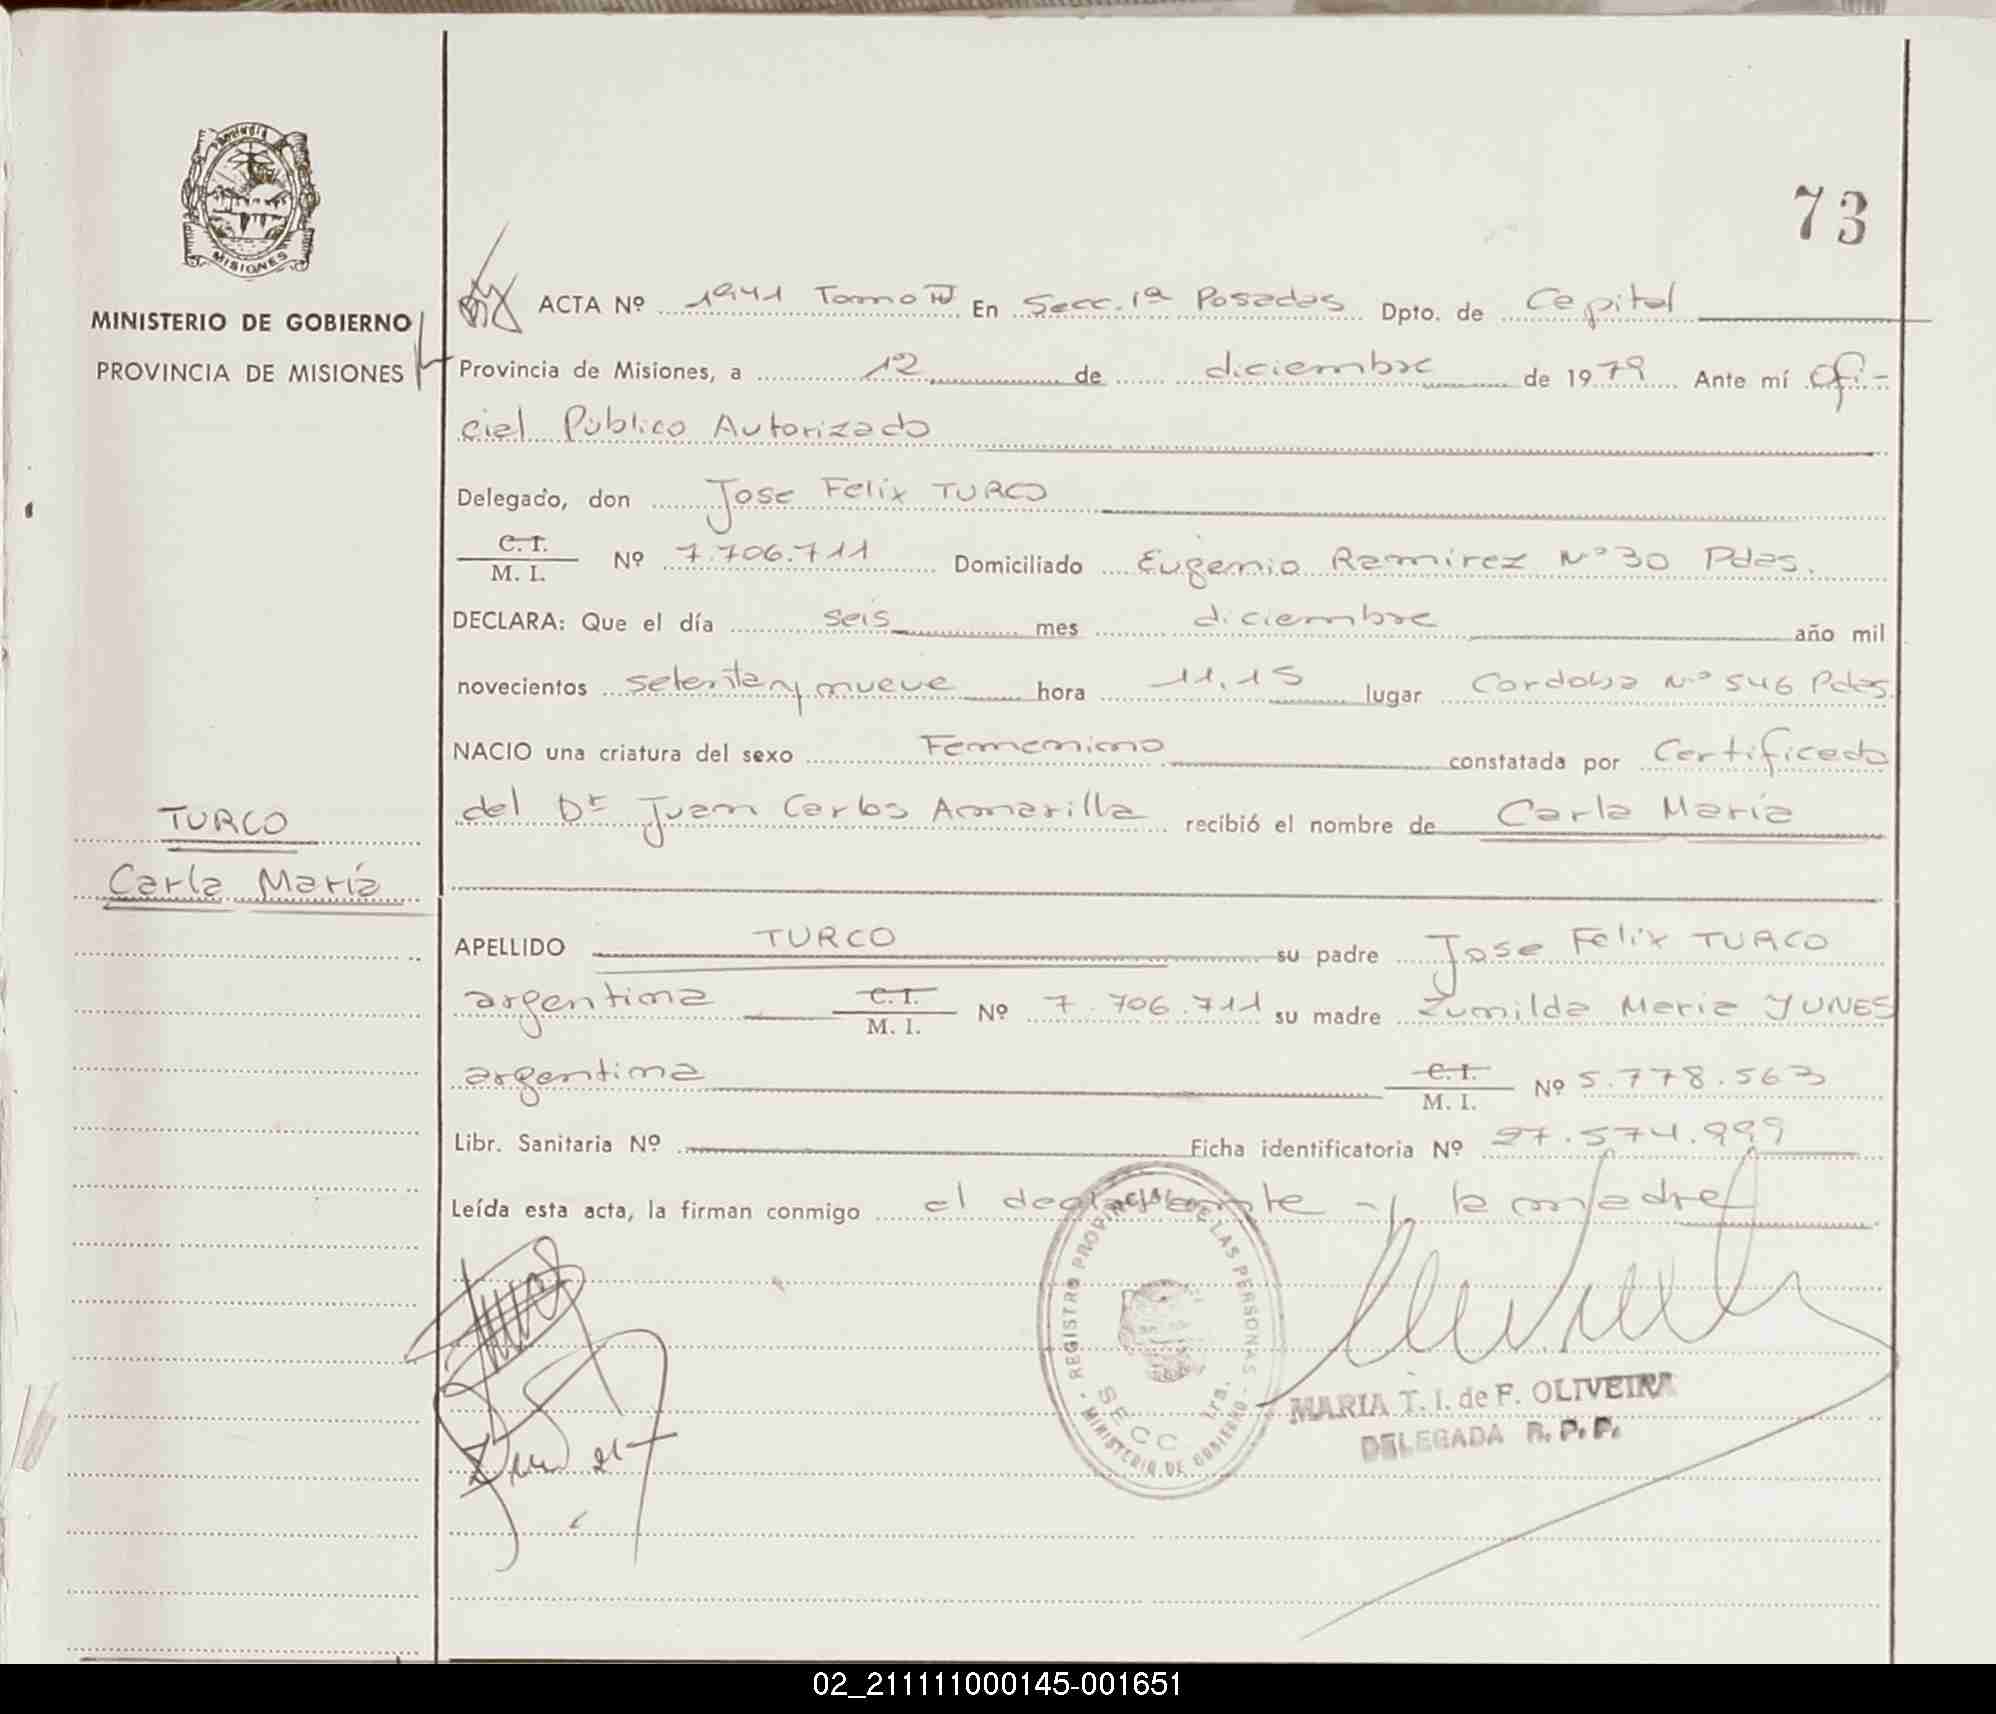 73
PROVINCIA
MISIONES
MINISTERIO DE GOBIERNO
PROVINCIA DE MISIONES
ACTA Nº 1941 Tomo IV En Secc. 1ª Posadas Dpto. de Capital
Provincia de Misiones, a 12 de diciembre de 1979 Ante mí Ofi-
cial Público Autorizado
Delegado, don Jose Felix TURCO
C. I.
M. I. Nº 7.706.711 Domiciliado Eugenio Ramirez Nº 30 Pdas.
DECLARA: Que el día seis mes diciembre año mil
novecientos setenta y nueve hora 11,15 lugar Cordoba Nº 546 Pdas.
NACIO una criatura del sexo Femenino constatada por Certificado
del Dr Juan Carlos Amarilla recibió el nombre de Carla María
TURCO
Carla María
APELLIDO TURCO su padre Jose Felix TURCO
argentina C. I.
M. I. Nº 7.706.711 su madre Zunilda Maria YUNES
argentina C. I.
M. I. Nº 5.778.563
Libr. Sanitaria Nº Ficha identificatoria Nº 27.574.999
Leída esta acta, la firman conmigo el declarante y la madre
REGISTRO PROVINCIAL DE LAS PERSONAS
SECC 1ra.
MINISTERIO DE GOBIERNO
MARIA T. I. de F. OLIVEIRA
DELEGADA R. P. P.
02_211111000145-001651